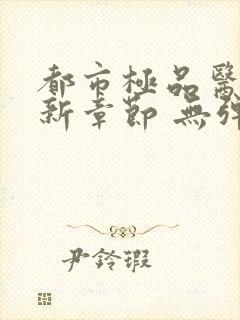 都市極品醫
新章節 無彈
尹鈴瑕